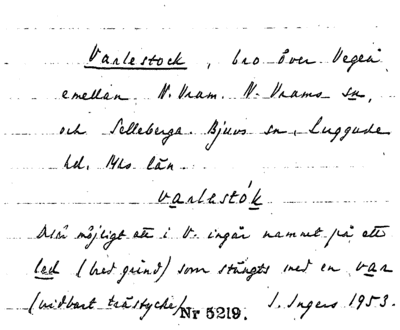 Varlestock, bro över Vegeå
emellan N. Vram. N. Vrams sn,
och Selleberga. Bjuvs sn, Luggude
hd. Mhs län
varlestók
Det är möjligt att i V. ingår namnet på ett
led (bred grind) som stängts med en var
(vidbart trästycke) Nr 5219. I. Ingers 1953.